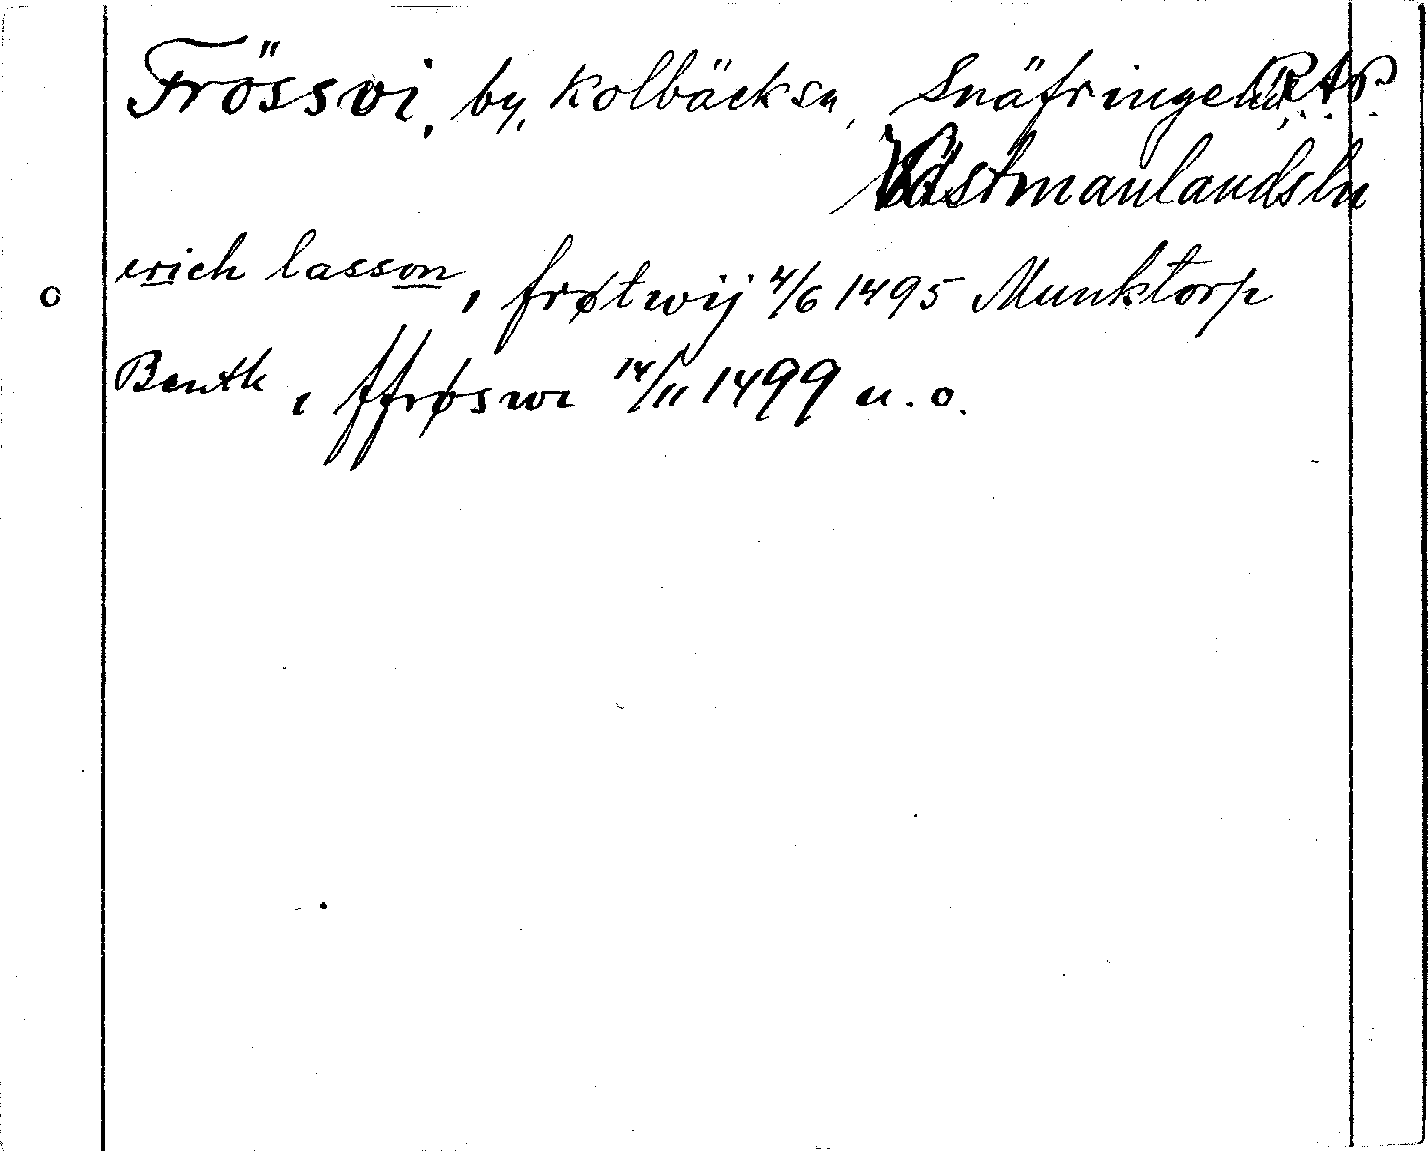 Frössvi, by, Kolbäcksn, Snäfringehd RAP.
Västmanlandsln
erich lasson, i frøtwij 4/6 1495 Munktorp
Benth i ffrøswi 14/11 1499 u.o.